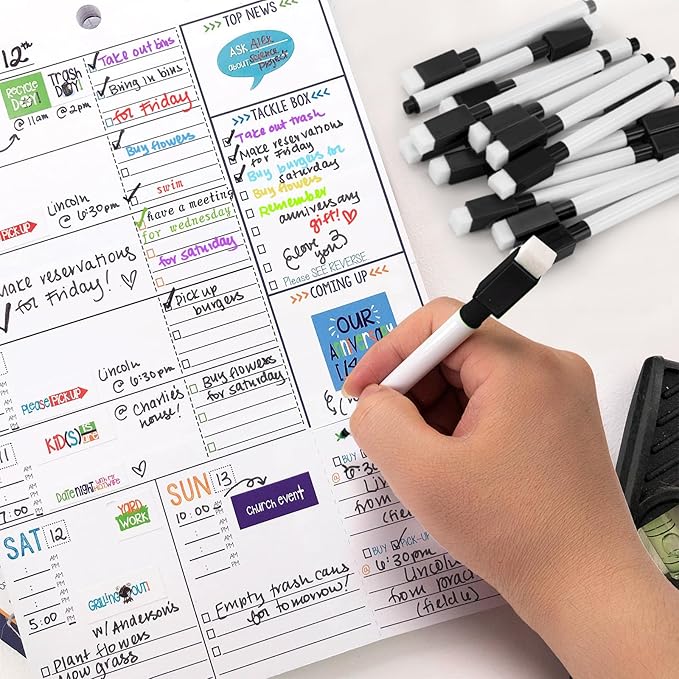 12th
RECYCLE
DAY!
@ 11am
TRASH
DAY!
@ 2pm
PICK UP
Lincoln
@ 6:30pm
Make reservations
for Friday!
Lincoln
@ 6:30pm
PLEASE PICK UP
@ Charlie's
house!
KID(S)
Date Night
Take out bins
Bring in bins
for Friday
Buy flowers
swim
have a meeting
for wednesday
for saturday
Pick up
burgers
Buy flowers
for saturday
TOP NEWS
ASK Alex
about Science
Project
TACKLE BOX
Take out trash
Make reservations
for Friday
Buy burgers for
saturday
Buy flowers
Remember
anniversary
gift!
{love you}
Please SEE REVERSE
COMING UP
OUR
Anniversary
11
AM
PM
7:00
SAT 12
AM
PM
5:00
YARD
WORK
GRILLING OUT!
w/ Andersons
Plant flowers
Mow grass
SUN 13
10:00
AM
PM
Church event
Empty trash cans
for tomorrow!
BUY
@
from
(field
BUY PICK-UP
@ 6:30pm
Lincoln
from prac
(field 6)